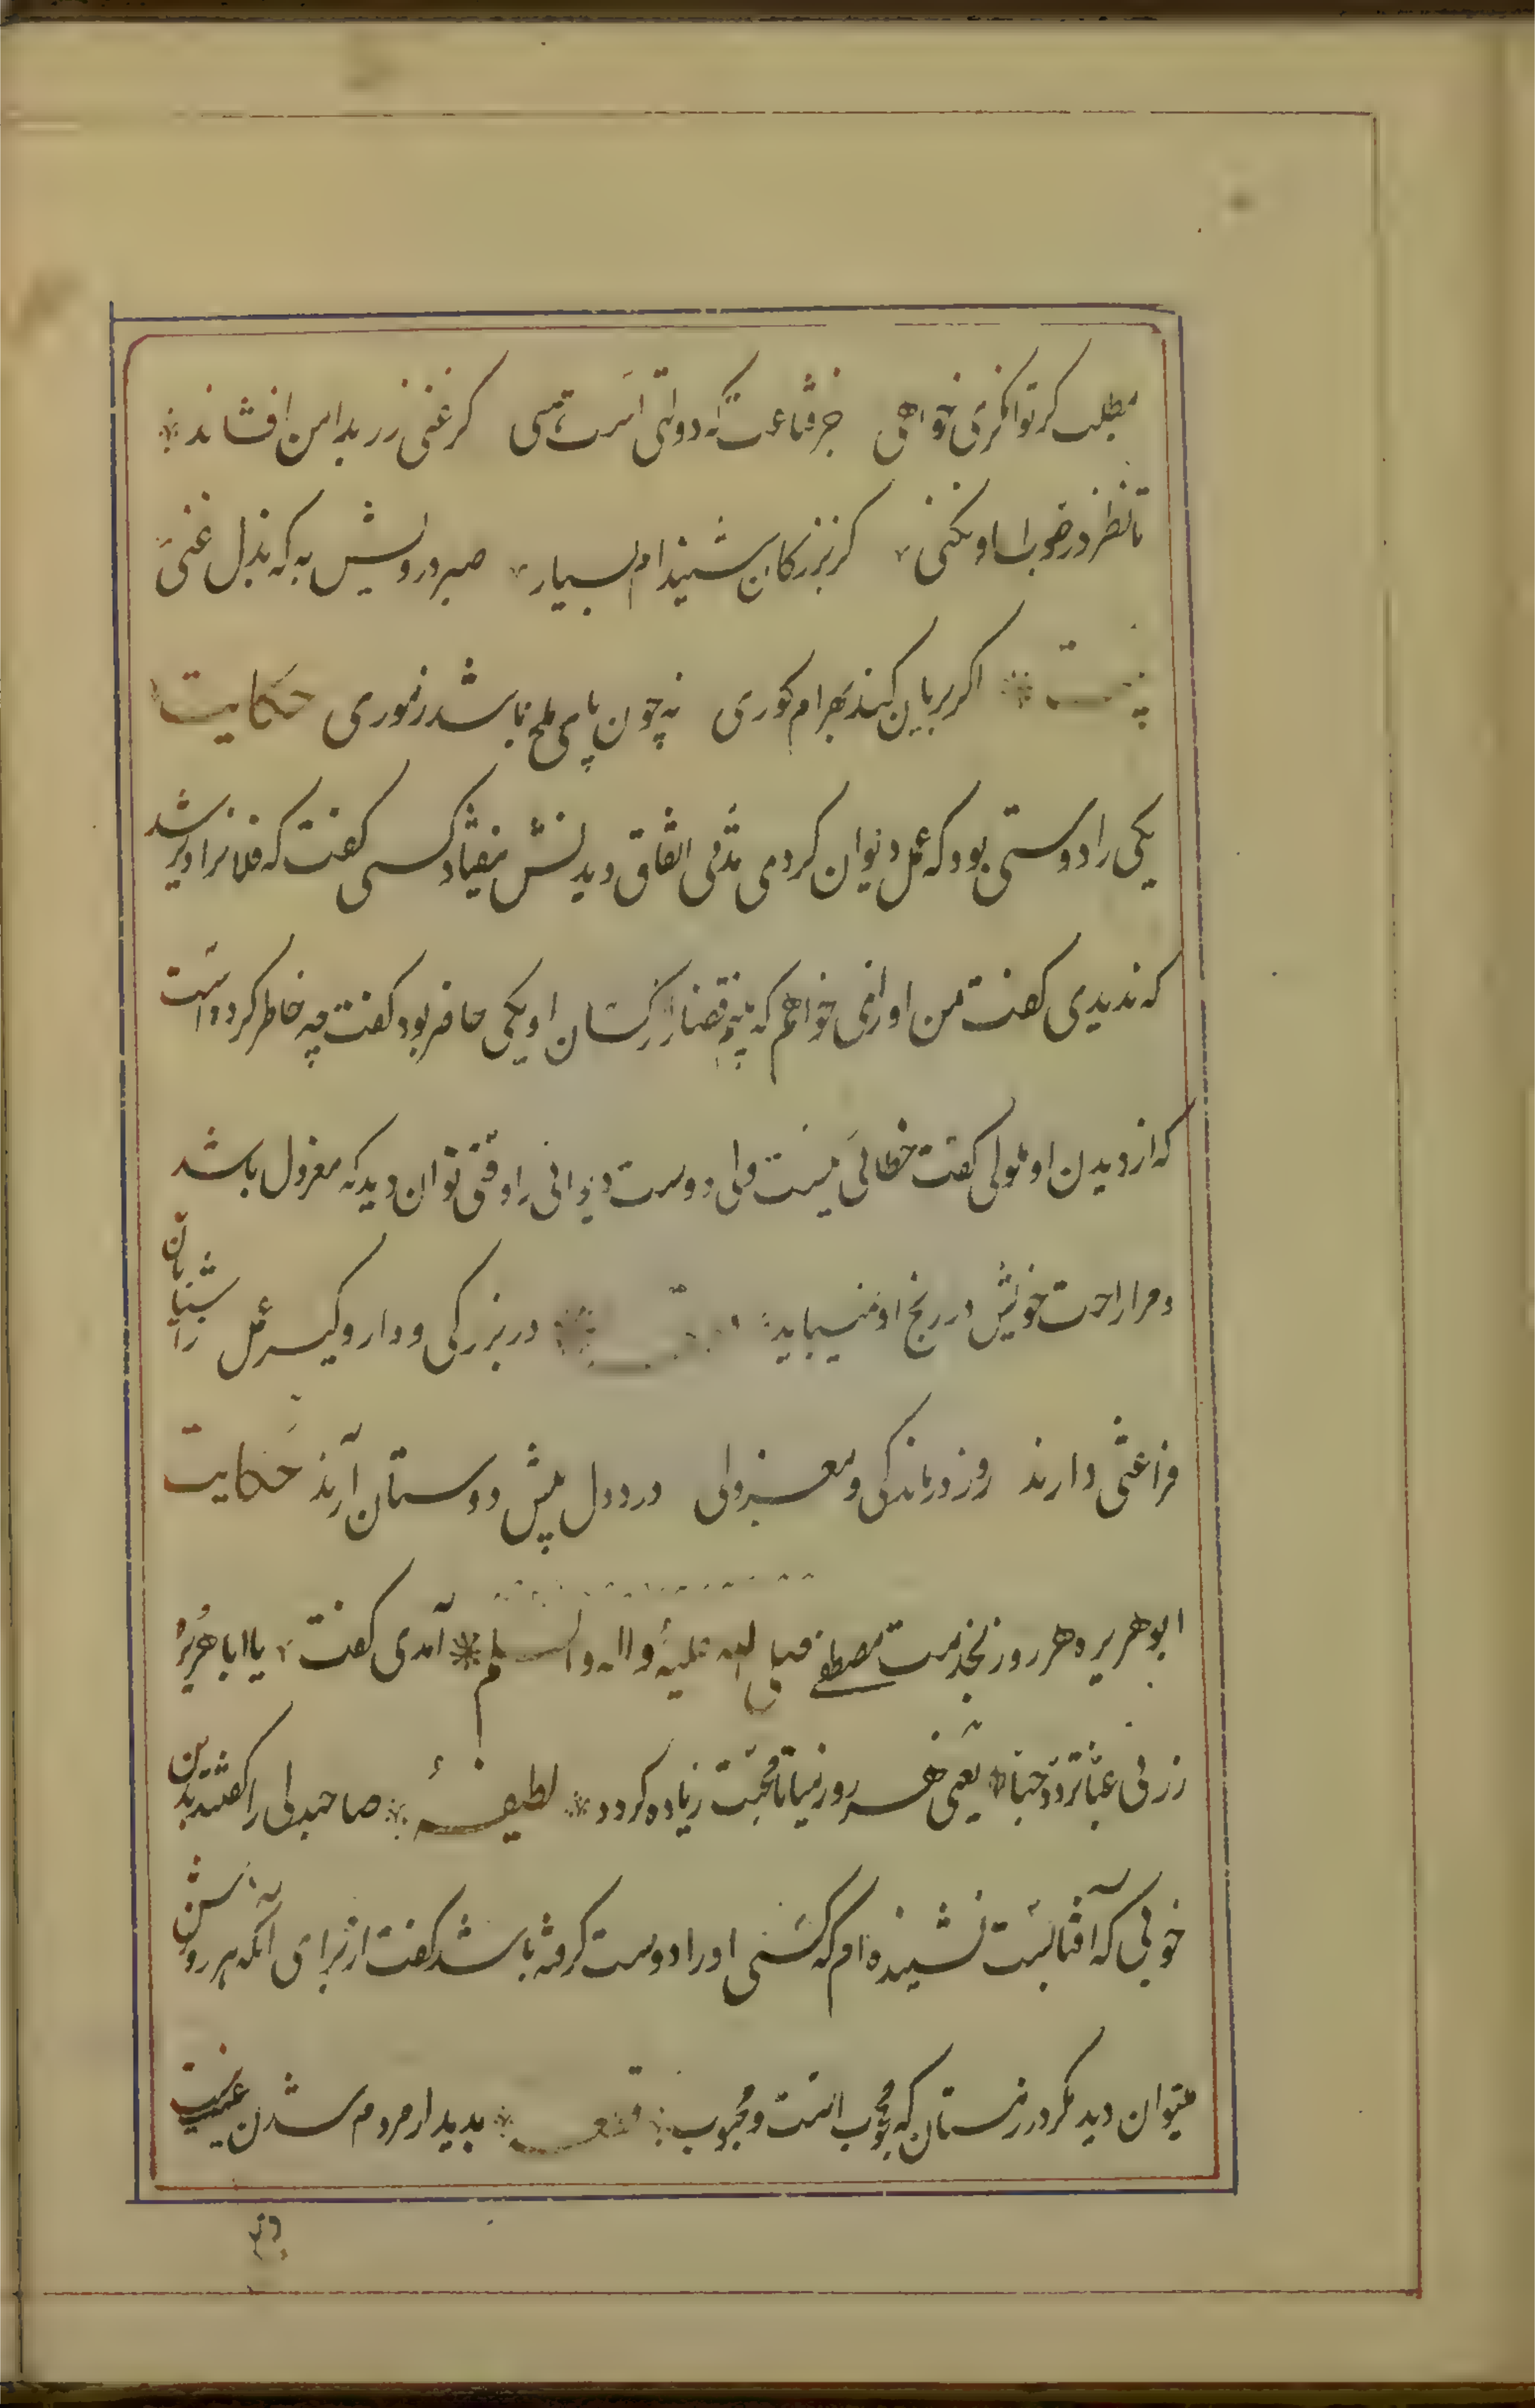 مطلب کر توانکری خواهی جز قناعت که دولتی است هنی کر غنی زر بدامن افشاند
تا نظر در ثواب او نکنی کز بزرکان شنیده ام بسیار صبر درویش به که بذل غنی
بیت اکر بریان کند بهرام کوری نه چون پای ملخ باشد زموری حکایت
یکی را دوستی بود که عمل دیوان کردی مدتی اتفاق دیدنش نیفتاد کسی کفت که فلانرا دیر شد
که ندیدی کفت من اورا نمی خواهم که بینم قضارا از کسان او یکی حاضر بود کفت چه خاطر کرده است
که از دیدن او ملولی کفت خطائی نیست ولی دوست دیوانی را وقتی توان دید که معزول باشد
و مرا راحت خویش در رنج او نمیباید در بزرکی و دار و کیر عمل زاشنایان
فراغتی دارند روز درماندکی و معزولی درد دل پیش دوستان آرند حکایت
ابو هریره هر روز بخدمت مصطفی صلی الله علیه و اله و السلم آمدی کفت یا ابا هریرة
زرنی غبا تزدد حبا یعنی هر روز میا تا محبت زیاده کردد لطیفه صاحبدلی را کفتند بدین
خوبی که آفتابست نشنیده ام که کسی اورا دوست کرفته باشد کفت از برای آنکه هر روزش
میتوان دید مکر در زمستان که محجوب است و محبوب قطعه بدیدار مردم شدن عیب نیست